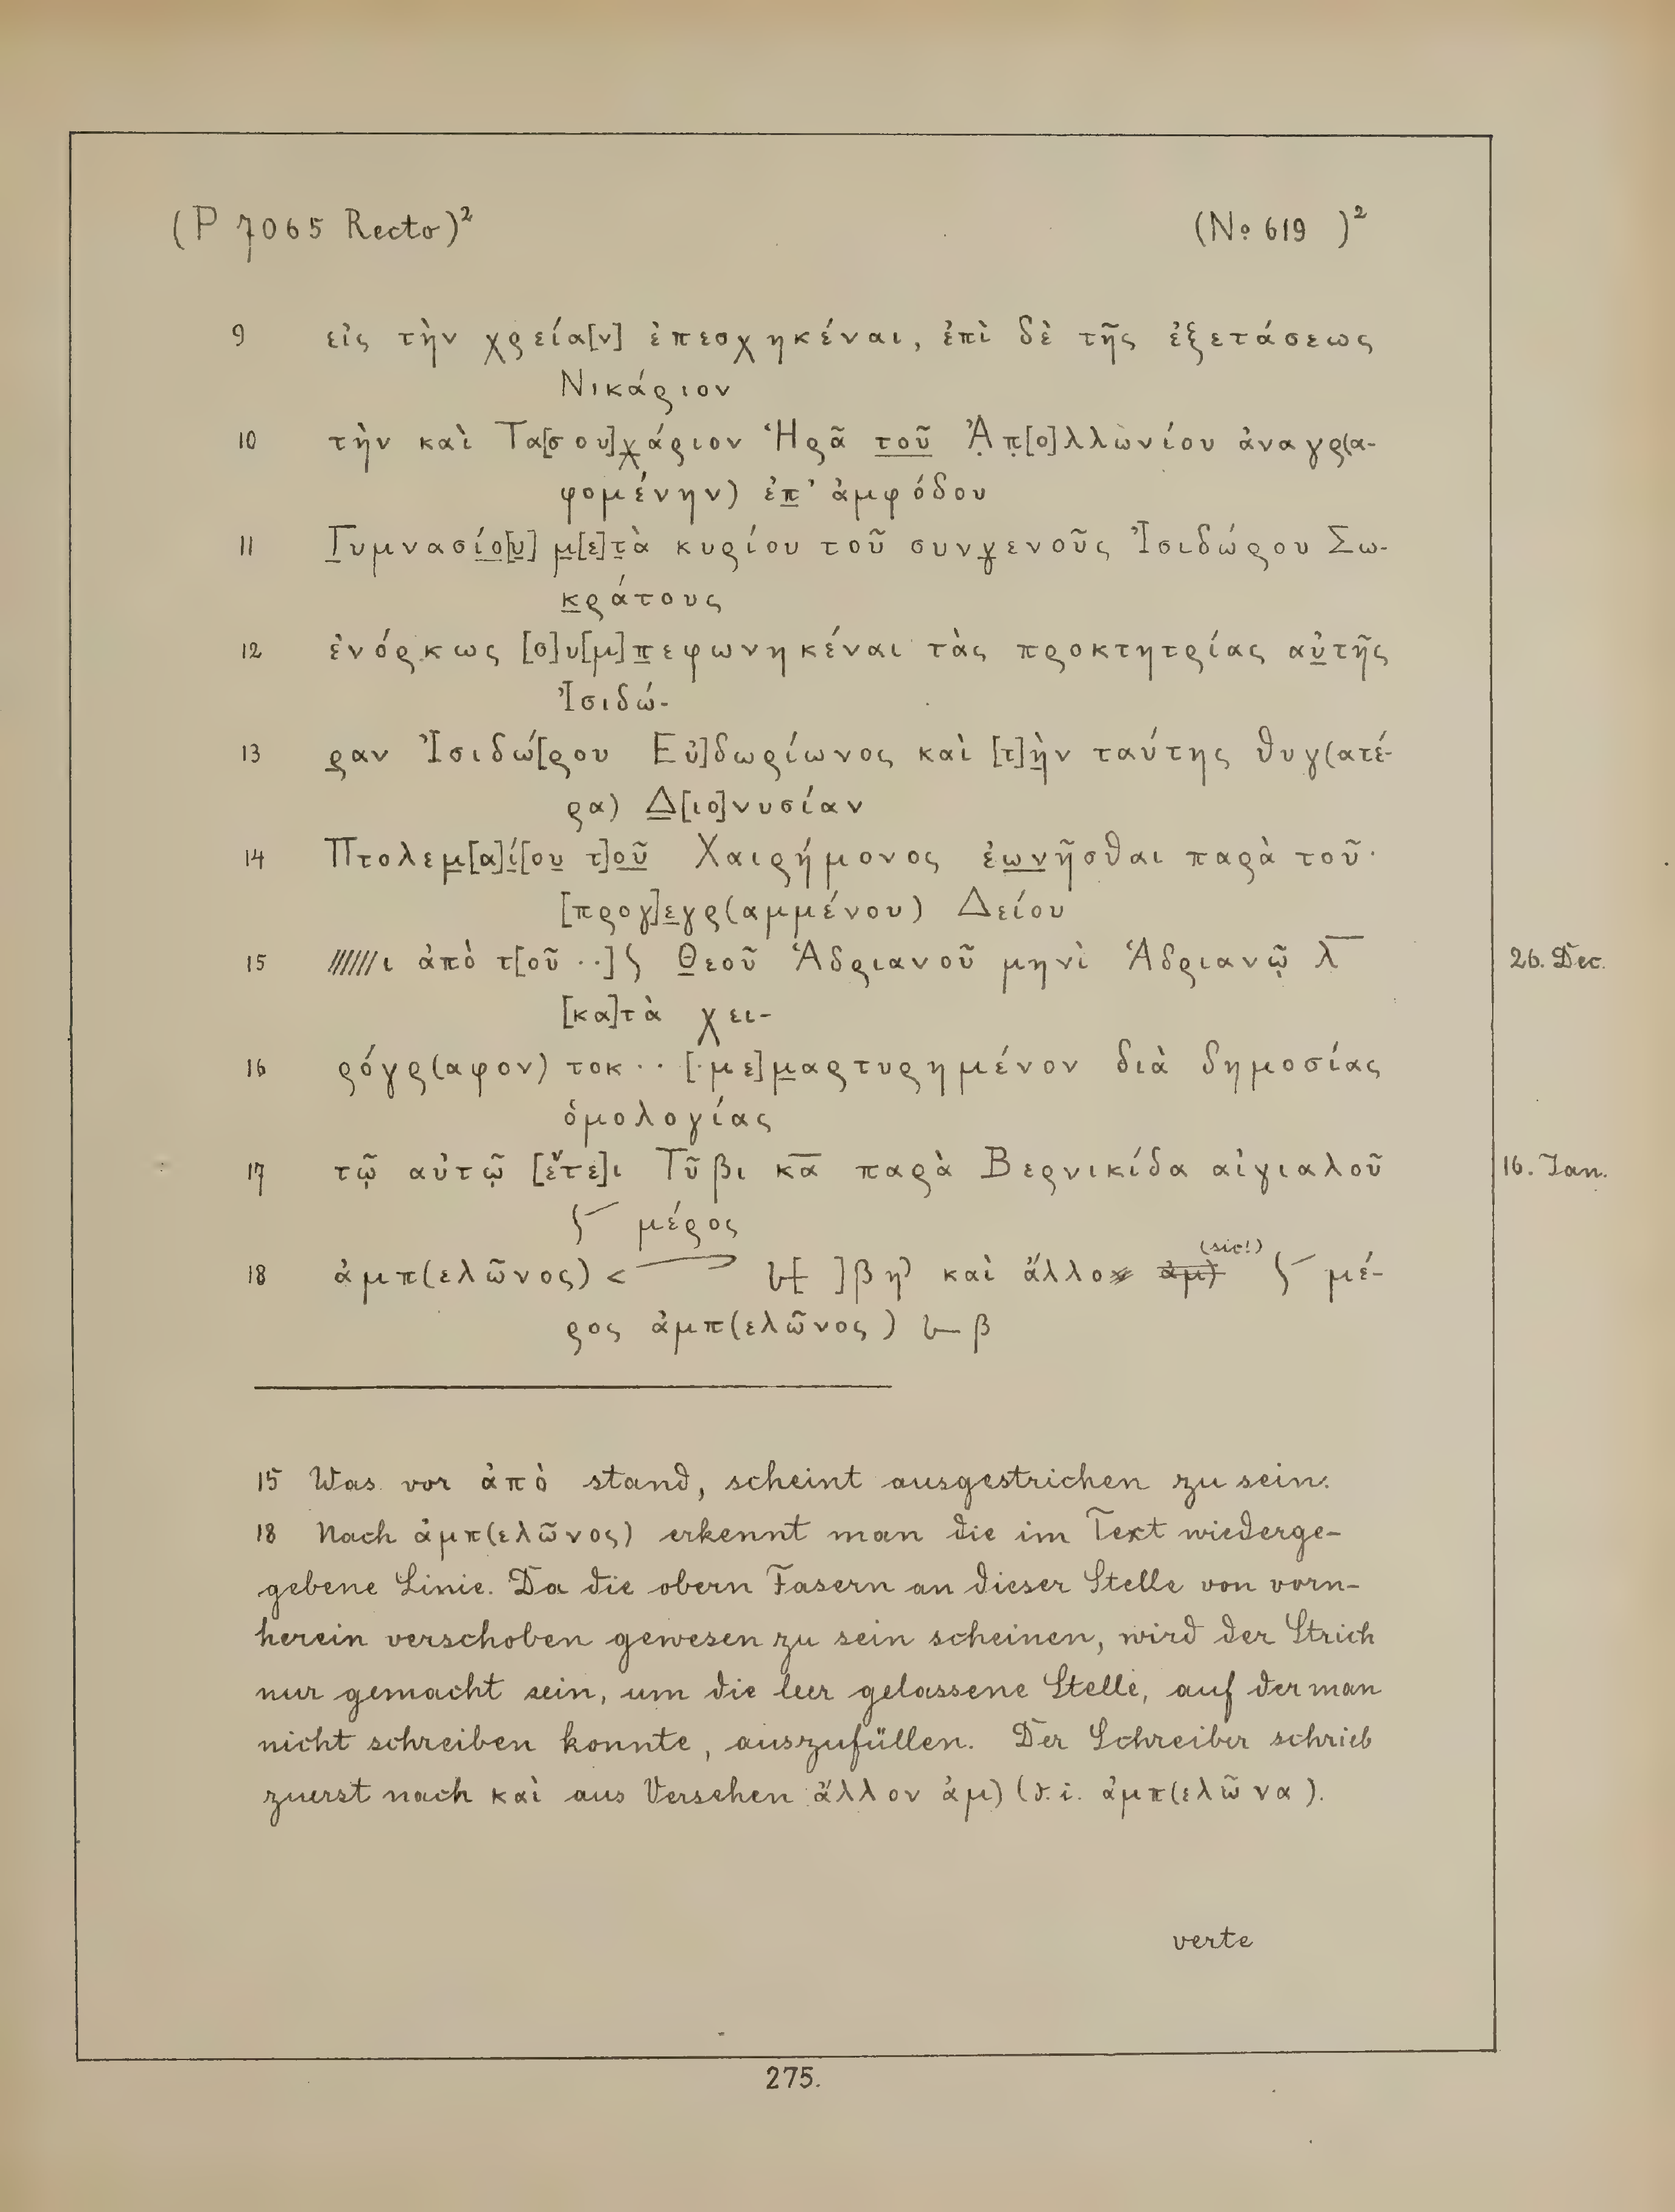 (P 7065 Recto)² (No 619 )²
9 εἰς τὴν χρεία[ν] ἐπεσχηκέναι, ἐπὶ δὲ τῆς ἐξετάσεως
Νικάριον
10 τὴν καὶ Τα[σου]χάριον Ἡρᾶ τοῦ Ἀπ[ο]λλωνίου ἀναγρ(α-
φομένην) ἐπ’ ἀμφόδου
11 Γυμνασίο[υ] μ[ε]τὰ κυρίου τοῦ συνγενοῦς Ἰσιδώρου Σω-
κράτους
12 ἐνόρκως [σ]υ[μ]πεφωνηκέναι τὰς προκτητρίας αὐτῆς
Ἰσιδώ-
13 ραν Ἰσιδώ[ρου Εὐ]δωρίωνος καὶ [τ]ὴν ταύτης θυγ(ατέ-
ρα) Δ[ιο]νυσίαν
14 Πτολεμ[α]ί[ου τ]οῦ Χαιρήμονος ἐωνῆσθαι παρὰ τοῦ
[προγ]εγρ(αμμένου) Δείου
15 //////ι ἀπὸ τ[οῦ ··] Θεοῦ Ἁδριανοῦ μηνὶ Ἁδριανῷ λ̅ 26. Dec.
[κα]τὰ χει-
16 ρόγρ(αφον) τοκ ·· [·με]μαρτυρημένον διὰ δημοσίας
ὁμολογίας
17 τῷ αὐτῷ [ἔτε]ι Τῦβι κ̅α̅ παρὰ Βερνικίδα αἰγιαλοῦ 16. Jan.
μέρος
18 ἀμπ(ελῶνος) < [ ]βη καὶ ἄλλον ἀμ) (sic!) μέ-
ρος ἀμπ(ελῶνος) β
15 Was vor ἀπὸ stand, scheint ausgestrichen zu sein.
18 Nach ἀμπ(ελῶνος) erkennt man die im Text wiederge-
gebene Linie. Da die obern Fasern an dieser Stelle von vorn-
herein verschoben gewesen zu sein scheinen, wird der Strich
nur gemacht sein, um die leer gelassene Stelle, auf der man
nicht schreiben konnte, auszufüllen. Der Schreiber schrieb
zuerst nach καὶ aus Versehen ἄλλον ἀμ) (d. i. ἀμπ(ελῶνα).
verte
275.